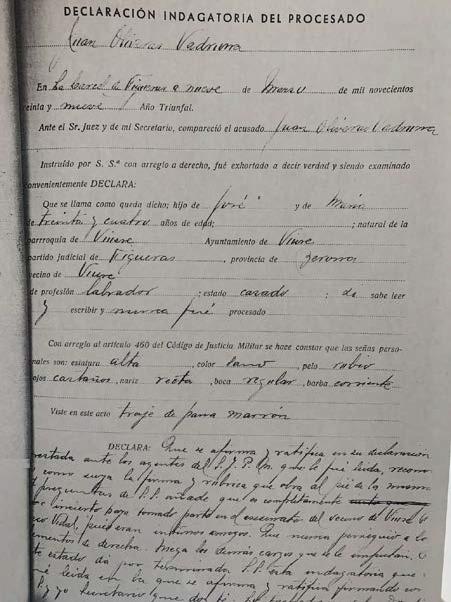 DECLARACIÓN INDAGATORIA DEL PROCESADO
Juan Oliveras Vadruna
En La Carcel de Figueras a nueve de Marzo de mil novecientos
reinta y nueve Año Triunfal.
Ante el Sr. Juez y de mi Secretario, compareció el acusado Juan Oliveras Vadruna
Instruído por S. S.ª con arreglo a derecho, fué exhortado a decir verdad y siendo examinado
convenientemente DECLARA:
Que se llama como queda dicho; hijo de José y de María
de treinta y cuatro años de edad; ; natural de la
parroquia de Viure Ayuntamiento de Viure
partido judicial de Figueras , provincia de Gerona
vecino de Viure
de profesión labrador ; estado casado ; sabe leer
y escribir y nunca fué procesado
Con arreglo al artículo 460 del Código de Justicia Militar se hace constar que las señas perso-
nales son: estatura alta , color sano , pelo rubio
ojos castaños , nariz recta , boca regular , barba corriente
Viste en este acto traje de pana marrón
DECLARA: Que se afirma y ratifica en su declaración
prestada ante los agentes del que le fué leida, recono
como suya la firma y rubrica que obra al pie de la misma
preguntas de S.S. añade que es completamente
tomado parte en el asesinato del vecino de Viure
Vidal, pues eran intimos amigos. Que nunca persiguió a
elementos de derecha. Niega los demás cargos que se le imputan.
estado da por terminada S.S. esta indagatoria que
leida en la que se afirma y ratifica firmando con
S. y yo Secretario que doy fé.